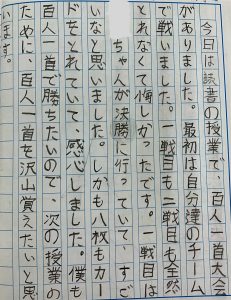 今日は読書の授業で、百人一首大会
がありました。最初は自分達のチーム
で戦いました。一戦目も二戦目も全然
とれなくて悔しかったです。一戦目は
ちゃんが決勝に行っていて、すご
いなと思いました。しかも八枚もカー
ドをとれていて、感心しました。僕も
百人一首で勝ちたいので、次の授業の
ために、百人一首を沢山覚えたいと思
います。